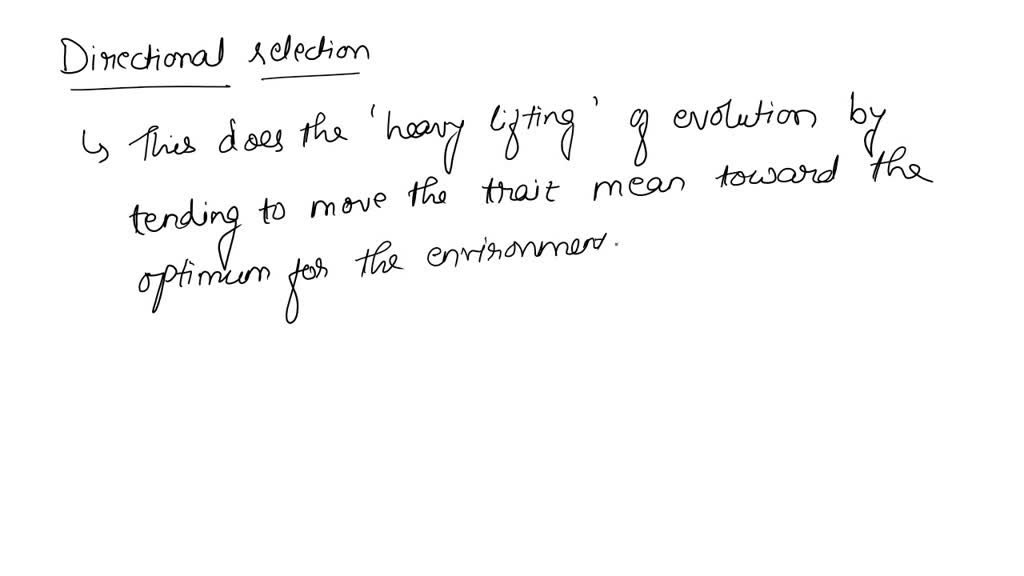 Directional selection
↳ This does the 'heavy lifting' of evolution by
tending to move the trait mean toward the
optimum for the environment.